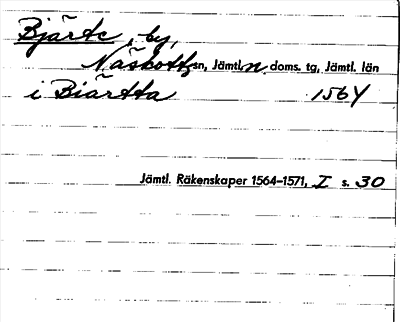 Bjärte, by,
Näskotts sn, Jämtl. n. doms. tg, Jämtl. län
i Biärtta 1564
Jämtl. Räkenskaper 1564–1571, I s. 30